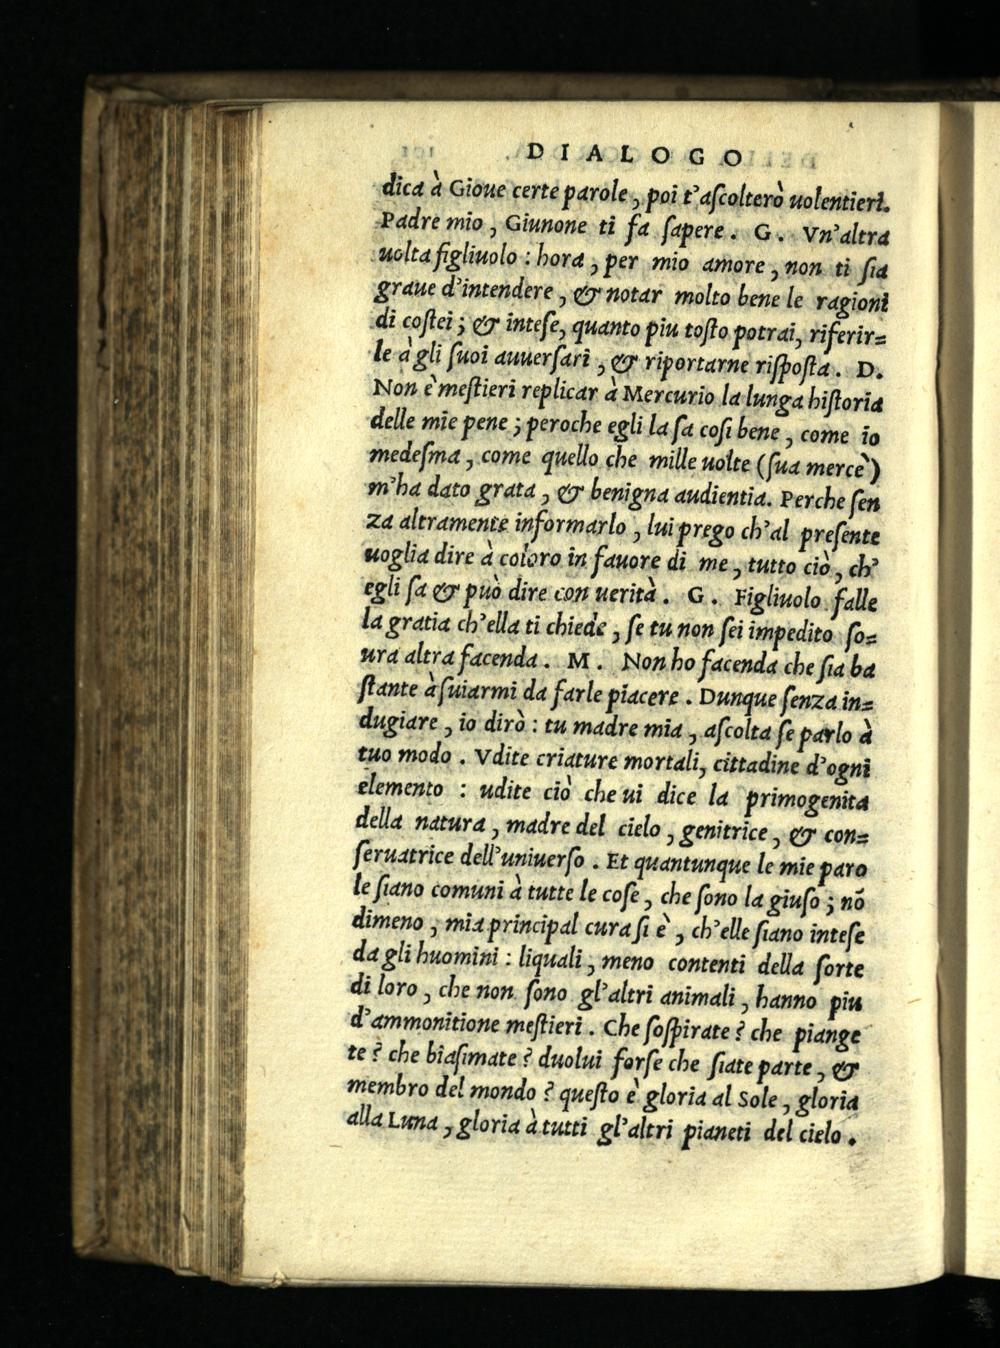 DIALOGO
dica à Gioue certe parole, poi t'aſcolterò uolentieri.
Padre mio, Giunone ti fa ſapere. G. Vn'altra
uolta figliuolo : hora, per mio amore, non ti ſia
graue d'intendere, & notar molto bene le ragioni
di coſtei; & inteſe, quanto piu toſto potrai, riferir=
le à gli ſuoi auuerſari, & riportarne riſpoſta. D.
Non è meſtieri replicar à Mercurio la lunga hiſtoria
delle mie pene; peroche egli la ſa coſi bene, come io
medeſma, come quello che mille uolte (ſua mercè)
m'ha dato grata, & benigna audientia. Perche ſen
za altramente informarlo, lui prego ch'al preſente
uoglia dire à coloro in fauore di me, tutto ciò, ch'
egli ſa & può dire con uerità. G. Figliuolo falle
la gratia ch'ella ti chiede, ſe tu non ſei impedito ſo=
ura altra facenda. M. Non ho facenda che ſia ba
ſtante à ſuiarmi da farle piacere. Dunque ſenza in=
dugiare, io dirò : tu madre mia, aſcolta ſe parlo à
tuo modo. Vdite criature mortali, cittadine d'ogni
elemento : udite ciò che ui dice la primogenita
della natura, madre del cielo, genitrice, & con=
ſeruatrice dell'uniuerſo. Et quantunque le mie paro
le ſiano comuni à tutte le coſe, che ſono la giuſo; nõ
dimeno, mia principal cura ſi è, ch'elle ſiano inteſe
da gli huomini : liquali, meno contenti della ſorte
di loro, che non ſono gl'altri animali, hanno piu
d'ammonitione meſtieri. Che ſoſpirate? che piange
te? che biaſimate? duolui forſe che ſiate parte, &
membro del mondo? queſto è gloria al Sole, gloria
alla Luna, gloria à tutti gl'altri pianeti del cielo.